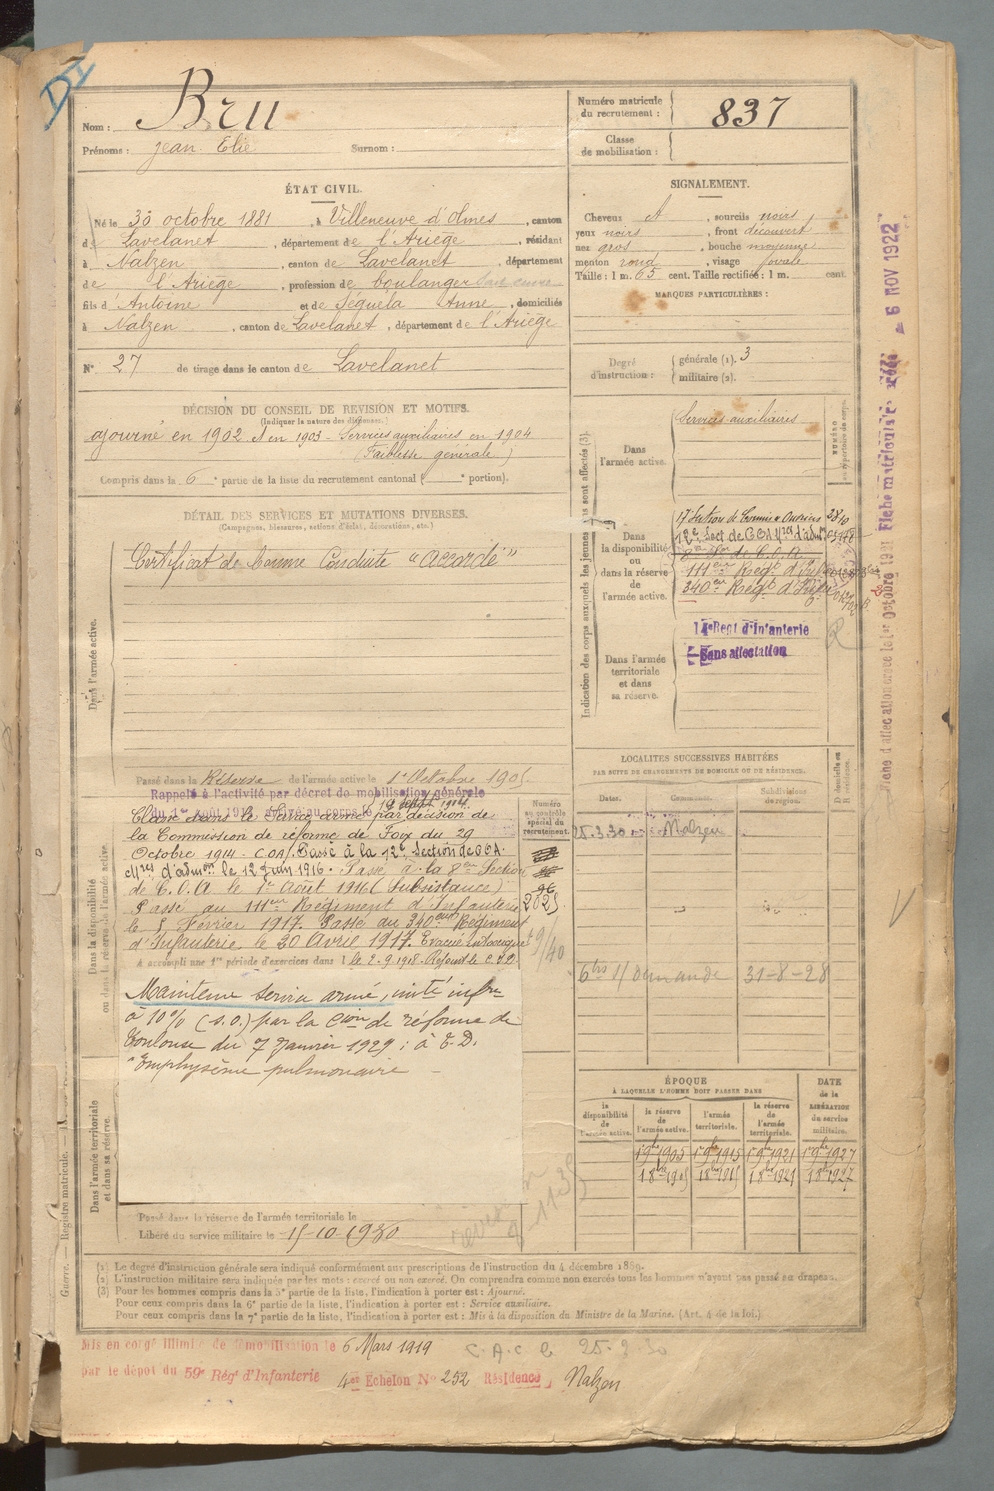 DI
Nom : Bru
Prénoms : jean Elie Surnom :
Numéro matricule du recrutement : 837
Classe de mobilisation :
ÉTAT CIVIL.
Né le 30 octobre 1881, à Villeneuve d'Olmes, canton
de Lavelanet, département de l'Ariège, résidant
à Nalzen, canton de Lavelanet, département
de l'Ariège, profession de boulanger
fils d'Antoine et de Séguela Anne, domiciliés
à Nalzen, canton de Lavelanet, département de l'Ariège
N° 27 de tirage dans le canton de Lavelanet
SIGNALEMENT.
Cheveux , sourcils noirs
yeux noirs, front découvert
nez gros, bouche moyenne
menton rond, visage ovale
Taille : 1 m. 65 cent. Taille rectifiée : 1 m. cent.
MARQUES PARTICULIÈRES :
Degré d'instruction : générale (1). 3
militaire (2).
DÉCISION DU CONSEIL DE REVISION ET MOTIFS.
(Indiquer la nature des dispenses.)
ajourné en 1902 & en 1903 - Services auxiliaires en 1904
(Faiblesse générale)
Compris dans la 6e partie de la liste du recrutement cantonal ( e portion).
DÉTAIL DES SERVICES ET MUTATIONS DIVERSES.
(Campagnes, blessures, actions d'éclat, décorations, etc.)
Certificat de bonne Conduite "Accordé"
Dans l'armée active.
Indication des corps auxquels les jeunes gens sont affectés (3).
NUMÉRO au répertoire du corps.
Dans l'armée active. Services auxiliaires
Dans la disponibilité ou dans la réserve de l'armée active.
17e Section de Commis & Ouvriers 2810
12e Sect de COA
8e Son de C.O.A
111eme Regt d'Infie
340eme Regt d'Infie
Dans l'armée territoriale et dans sa réserve.
14e Regt d'Infanterie
Sans affectation
Fiche d'affectation créée le 1er Octobre 1921 Fiche matricule 6 NOV 1922
Passé dans la Réserve de l'armée active le 1er Octobre 1905
Rappelé à l'activité par décret de mobilisation générale
du 1er août 1914
Classé dans le Service armé par décision de
la Commission de réforme de Foix du 29
Octobre 1914 - COA. Passé à la 12e Section de COA
d'admon le 12 juin 1916. Passé à la 8eme Section
de C.O.A le 1er Août 1916 (Subsistance)
Passé au 111eme Régiment d'Infanterie
le Février 1917. Passé au 340eme Régiment
d'Infanterie le 20 Avril 1917. Evacué intoxiqué
A accompli une 1re période d'exercices dans l le 2-9-1918 -
Maintenu service armé, invté infre
à 10% (s.o.) par la Cion de réforme de
Toulouse du 7 Janvier 1929 ; à E.D.
"Emphysème pulmonaire -
Numéro au contrôle spécial du recrutement.
2025
Dans la disponibilité ou dans la réserve de l'armée active.
Dans l'armée territoriale et dans sa réserve.
Passé dans la réserve de l'armée territoriale le
Libéré du service militaire le 15-10-1930
LOCALITÉS SUCCESSIVES HABITÉES
PAR SUITE DE CHANGEMENTS DE DOMICILE OU DE RÉSIDENCE.
Dates. Communes. Subdivisions de région. D domicile ou R résidence.
25.3.30 Nalzen
6 bis s/ Demande 31-8-28
ÉPOQUE
À LAQUELLE L'HOMME DOIT PASSER DANS
la disponibilité de l'armée active. la réserve de l'armée active. l'armée territoriale. la réserve de l'armée territoriale.
DATE de la LIBÉRATION du service militaire.
1 9bre 1905 1 9bre 1915 1 9bre 1921 1 9bre 1927
1 8bre 1905 1 8bre 1915 1 8bre 1921 1 8bre 1927
(1) Le degré d'instruction générale sera indiqué conformément aux prescriptions de l'instruction du 4 décembre 1889.
(2) L'instruction militaire sera indiquée par les mots : exercé ou non exercé. On comprendra comme non exercés tous les hommes n'ayant pas passé au drapeau.
(3) Pour les hommes compris dans la 5e partie de la liste, l'indication à porter est : Ajourné.
Pour ceux compris dans la 6e partie de la liste, l'indication à porter est : Service auxiliaire.
Pour ceux compris dans la 7e partie de la liste, l'indication à porter est : Mis à la disposition du Ministre de la Marine. (Art. 4 de la loi.)
Guerre. — Registre matricule.
Mis en congé illimité de démobilisation le 6 Mars 1919
C.A.C le 25-3-30
par le dépôt du 59e Régt d'Infanterie 4e Echelon No 252 Résidence, Nalzen